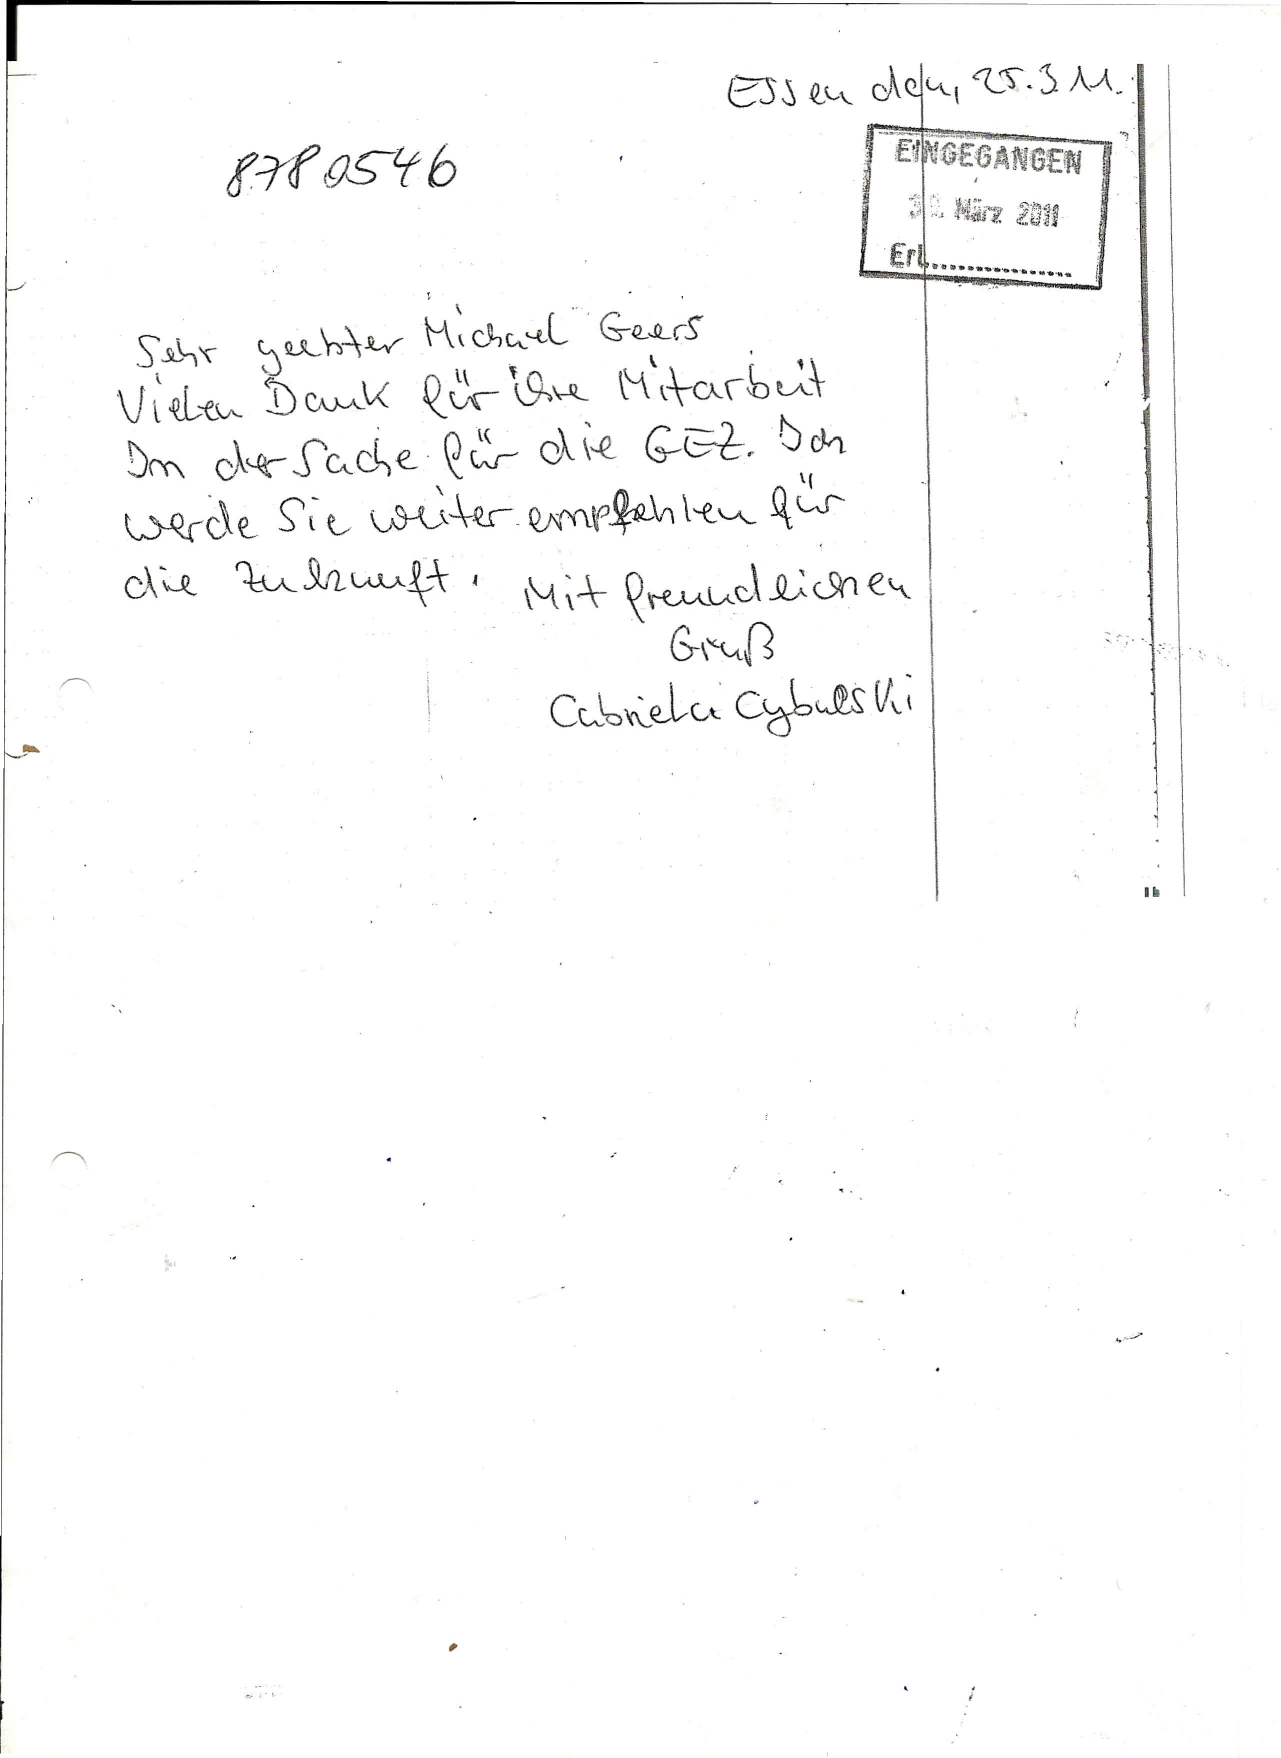 Essen den, 25.3.11.
8780546
EINGEGANGEN
März 2011
Erl..................
Sehr geehter Michael Geers
Vielen Dank für ihre Mitarbeit
In der Sache für die GEZ. Ich
werde Sie weiter empfehlen für
die Zukunft. Mit freundlichen
Gruß
Gabriela Cybulski